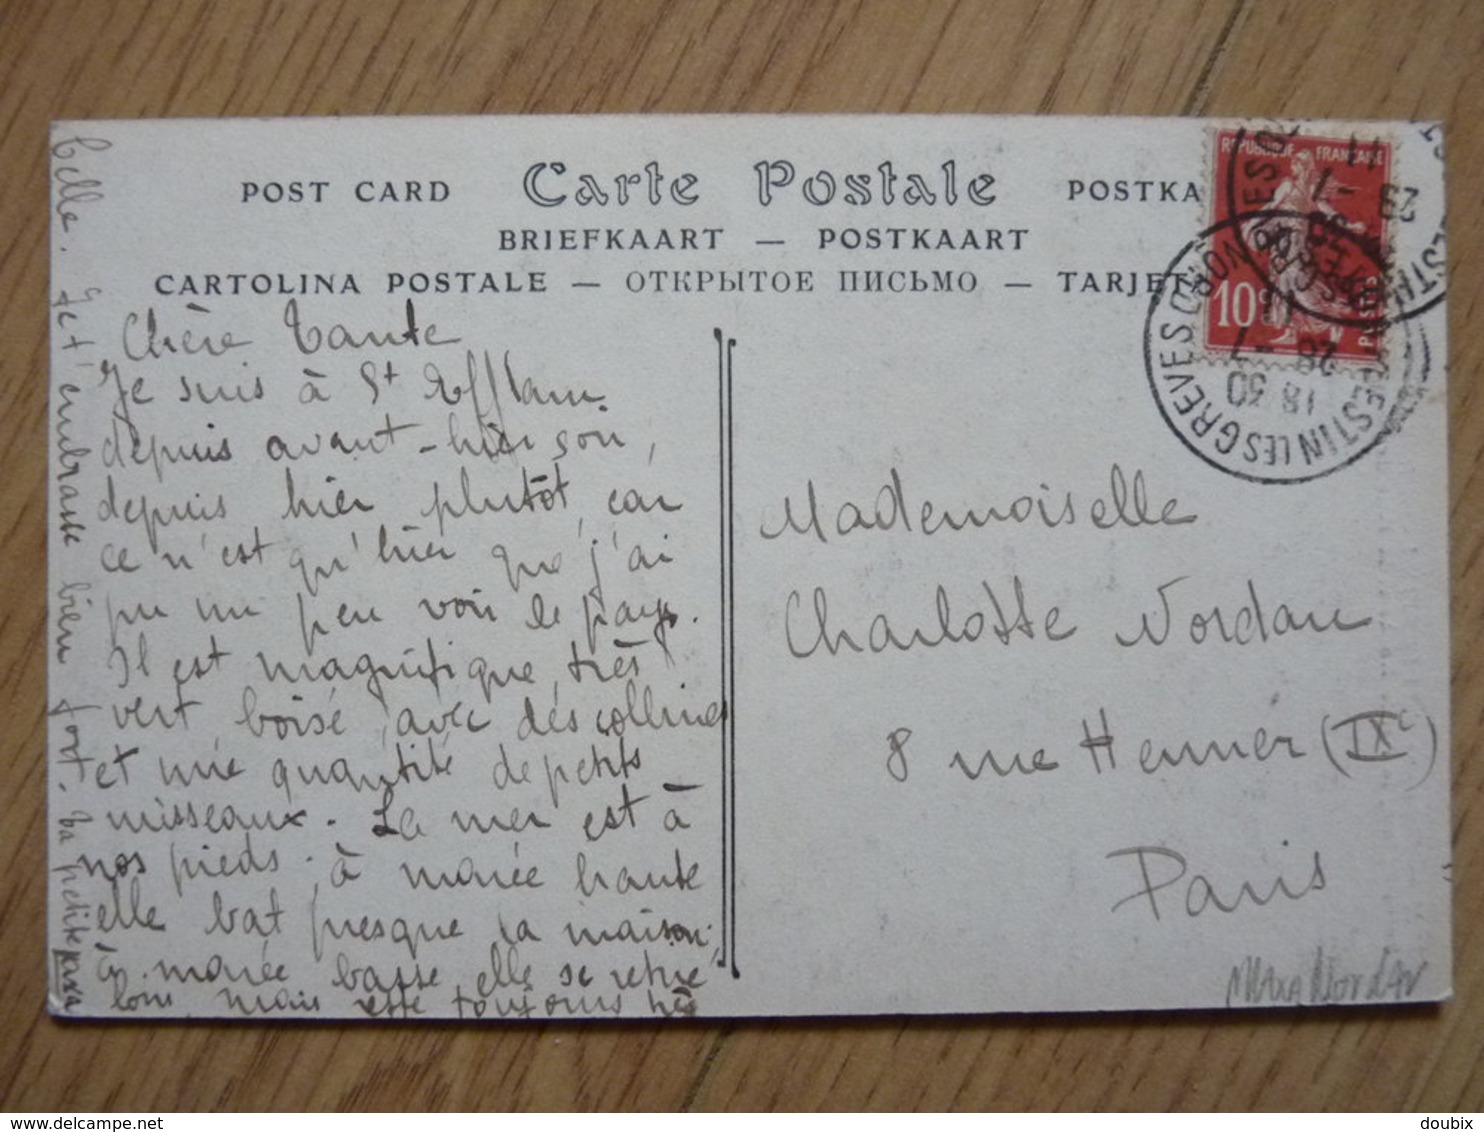 POST CARD Carte Postale POSTKA
BRIEFKAART — POSTKAART
CARTOLINA POSTALE — ОТКРЫТОЕ ПИСЬМО — TARJET
REPUBLIQUE FRANÇAISE
10c POSTES
PLESTIN LES GREVES CÔTES DU NORD
18 30
28 -7
11
29 -7
11
Chère Tante
Je suis à St Efflam
depuis avant-hier soir,
depuis hier plutôt, car
ce n'est qu'hier que j'ai
pu un peu voir le pays.
Il est magnifique, très
vert, boisé, avec des collines
et une quantité de petits
ruisseaux. La mer est à
nos pieds; à marée haute
elle bat presque la maison;
à marée basse elle se retire
loin, mais reste toujours très
belle. Je t'embrasse bien fort. Ta petite Maxa
Mademoiselle
Charlotte Nordau
8 rue Henner (IXe)
Paris
Maxa Nordau
delcampe.net
doubix